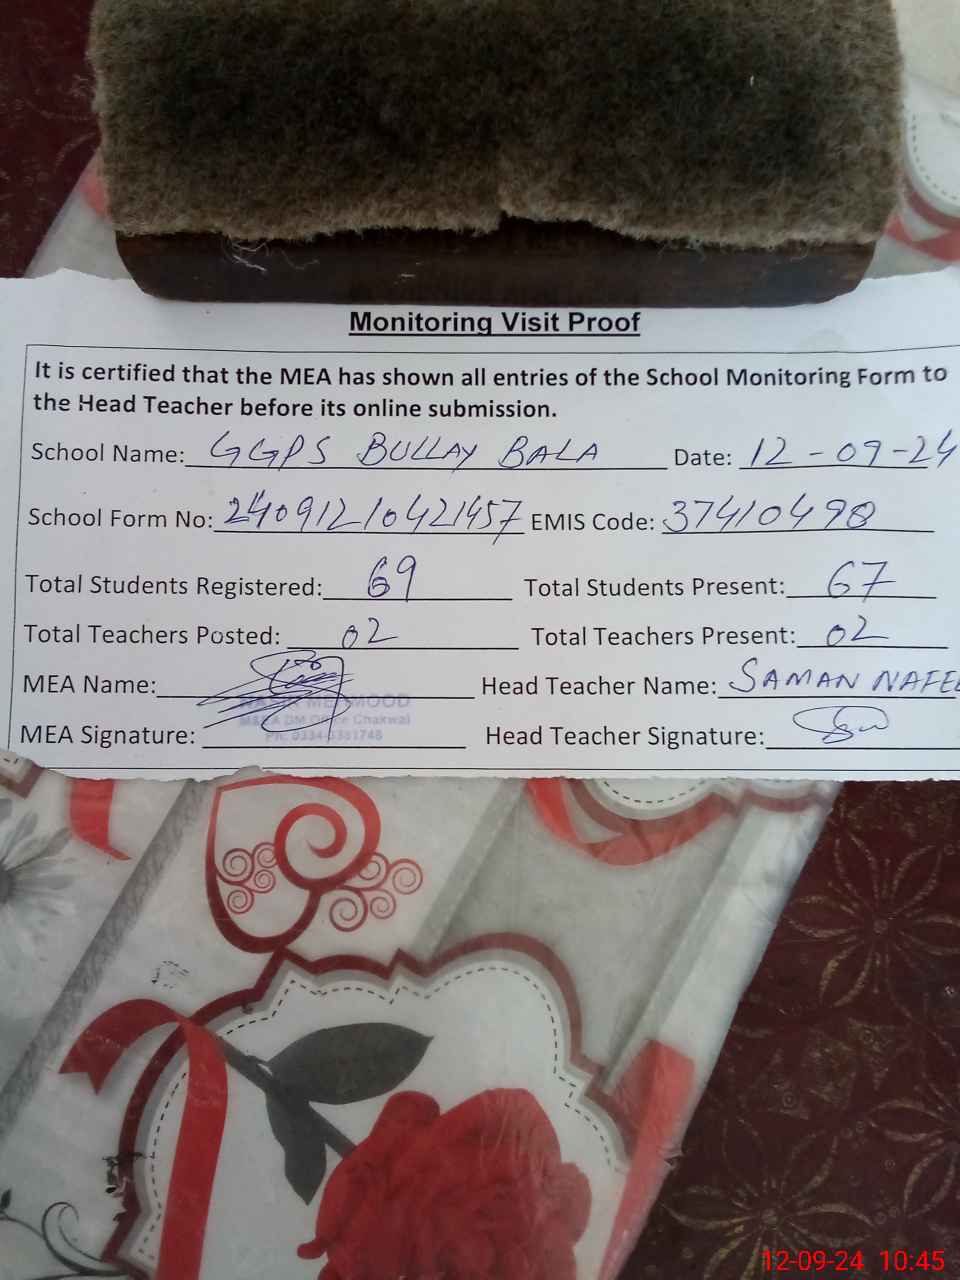 Monitoring Visit Proof
It is certified that the MEA has shown all entries of the School Monitoring Form to
the Head Teacher before its online submission.
School Name: GGPS BULLAY BALA Date: 12-09-24
School Form No: 24091210421457 EMIS Code: 37410498
Total Students Registered: 69 Total Students Present: 67
Total Teachers Posted: 02 Total Teachers Present: 02
MEA Name: Head Teacher Name: SAMAN NAFEE
MEHMOOD
M&EA DM Office Chakwal
MEA Signature: Head Teacher Signature:
Ph: 0334-
12-09-24 10:45